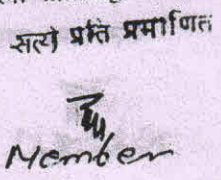 सत्य प्रति प्रमाणित
Member